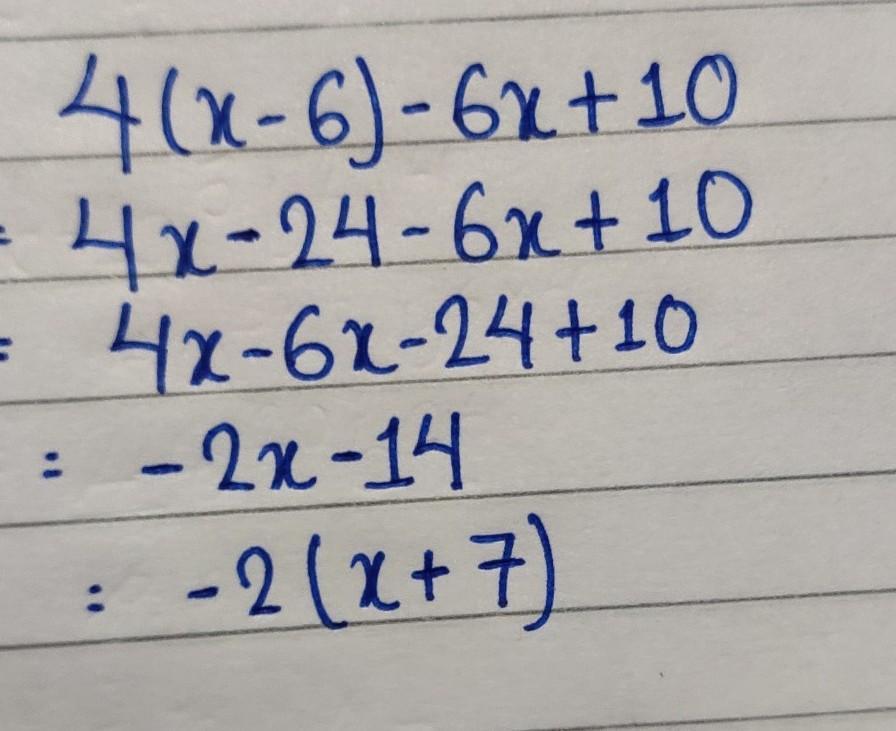 4(x-6)-6x+10
= 4x-24-6x+10
= 4x-6x-24+10
= -2x-14
= -2(x+7)